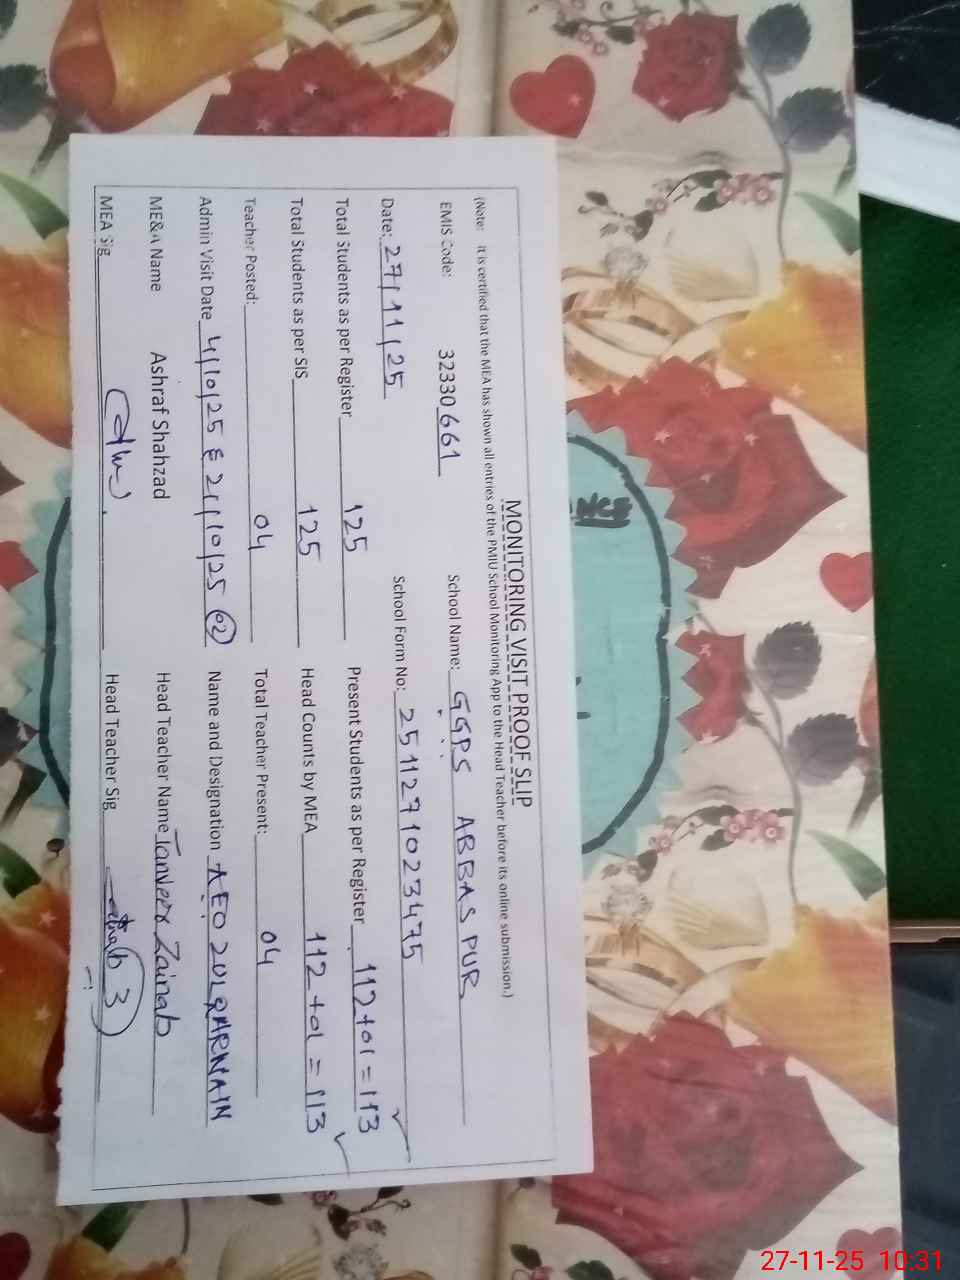 MONITORING VISIT PROOF SLIP
(Note: it is certified that the MEA has shown all entries of the PMIU School Monitoring App to the Head Teacher before its online submission.)
EMIS Code: 32330661 School Name: GGPS ABBAS PUR
Date: 27/11/25 School Form No: 2511271023475
Total Students as per Register 125 Present Students as per Register 112+01=113
Total Students as per SIS 125 Head Counts by MEA 112+01=113
Teacher Posted: 04 Total Teacher Present: 04
Admin Visit Date 4/10/25 & 21/10/25 02 Name and Designation AEO ZULQARNAIN
ME&A Name Ashraf Shahzad Head Teacher Name Tanveer Zainab
MEA Sig Head Teacher Sig
27-11-25 10:31